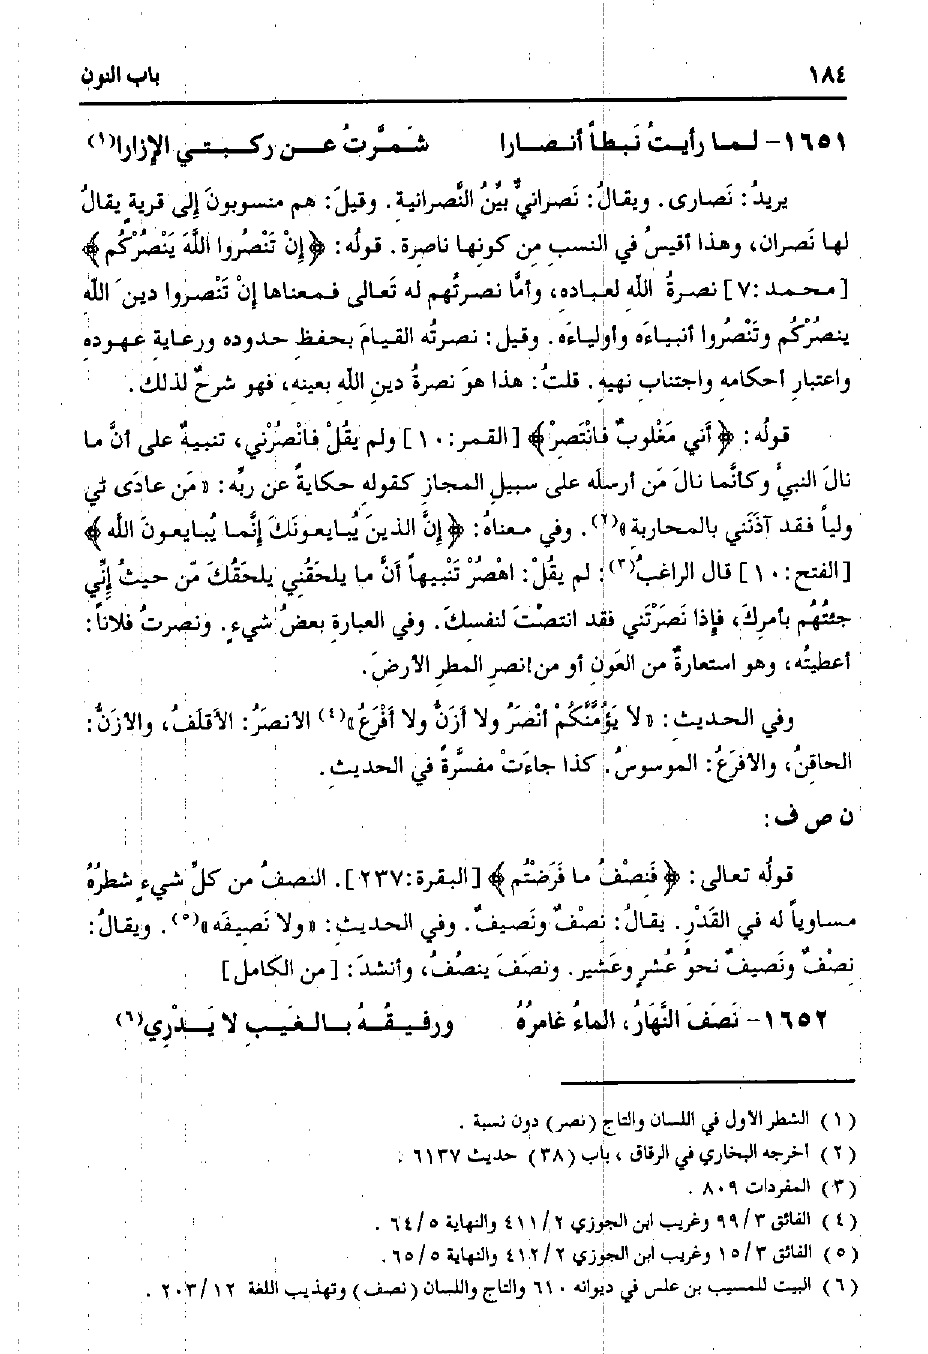 ١٨٤ باب النون
١٦٥١- لـمـا رأيـتُ نَـبـطـاً أنـصـارا شَـمـرَّتُ عــن ركـبـتـي الإزارا(١)
يريدُ: نَصارى. ويقالُ: نَصرانيٌّ بيِّنُ النَّصرانية. وقيلَ: هم منسوبونَ إلى قريةٍ يقالُ
لها نَصران، وهذا أقيسُ في النسبِ مِن كونها ناصرة. قولُه: ﴿إنْ تَنْصُروا اللَّهَ يَنصُرْكُم﴾
[محمد:٧] نصرةُ اللَّهِ لعباده، وأمَّا نصرتُهم له تَعالى فمعناها إنْ تَنْصروا دينَ اللَّهِ
ينصرْكُم وتَنْصُروا أنبياءَه وأولياءَه. وقيل: نصرتُه القيامُ بحفظِ حدوده ورعايةِ عهوده
واعتبارِ أحكامه واجتنابِ نهيهِ. قلتُ: هذا هوَ نصرةُ دينِ اللَّهِ بعينه، فهو شرحٌ لذلك.
قولُه: ﴿أَني مَغْلوبٌ فانْتَصِرْ﴾ [القمر:١٠] ولم يقُلْ فانْصُرْني، تنبيهٌ على أنَّ ما
نالَ النبيُّ وكأنَّما نالَ مَن أرسلَه على سبيلِ المجازِ كقولهِ حكايةً عن ربِّه: «مَن عادَى لي
ولياً فقد آذَنَني بالمحاربة»(٢). وفي معناهُ: ﴿إنَّ الذينَ يُبايعونَكَ إنَّما يُبايعونَ اللَّه﴾
[الفتح:١٠] قال الراغبُ(٣): لم يقُلْ: اهْصُرْ تَنْبيهاً أنَّ ما يلحقُني يلحَقُكَ مِن حيثُ إنِّي
جئتُهُم بأمرِكَ، فإذا نَصَرْتَني فقد انتصْتَ لنفسِكَ. وفي العبارةِ بعضُ شيءٍ. ونصرتُ فلاناً:
أعطيتُه، وهو استعارةٌ من العَونِ أو من انصرِ المطرِ الأرضَ.
وفي الحديثِ: «لا يَؤُمَّنَّكُمْ أنْصَرُ ولا أزَنُّ ولا أَفْرَعُ»(٤) الأنصَرُ: الأقلَفُ، والأزَنُّ:
الحاقِنُ، والأفرَعُ: الموسوسُ. كذا جاءَتْ مفسَّرةً في الحديثِ.
ن ص ف:
قولُه تعالى: ﴿فَنِصْفُ ما فَرَضْتُم﴾ [البقرة:٢٣٧]. النصفُ من كلِّ شيءٍ شطرُهُ
مساوياً له في القَدْرِ. يقالُ: نِصْفٌ ونَصيفٌ. وفي الحديثِ: «ولا نَصيفَه»(٥). ويقالُ:
نِصْفٌ ونَصيفٌ نحوُ عُشرٍ وعَشيرٍ. ونصَفَ ينصُفُ، وأنشدَ: [من الكامل]
١٦٥٢- نَصَفَ النَّهارُ، الماءُ غامرُهُ ورفـيـقُـهُ بـالـغَـيـبِ لا يَـدْرِي(٦)
(١) الشطر الأول في اللسان والتاج (نصر) دون نسبة.
(٢) أخرجه البخاري في الرقاق، باب (٣٨) حديث ٦١٣٧.
(٣) المفردات ٨٠٩.
(٤) الفائق ٩٩/٣ وغريب ابن الجوزي ٤١١/٢ والنهاية ٦٤/٥.
(٥) الفائق ١٥/٣ وغريب ابن الجوزي ٤١٢/٢ والنهاية ٦٥/٥.
(٦) البيت للمسيب بن علس في ديوانه ٦١٠ والتاج واللسان (نصف) وتهذيب اللغة ٢٠٣/١٢.